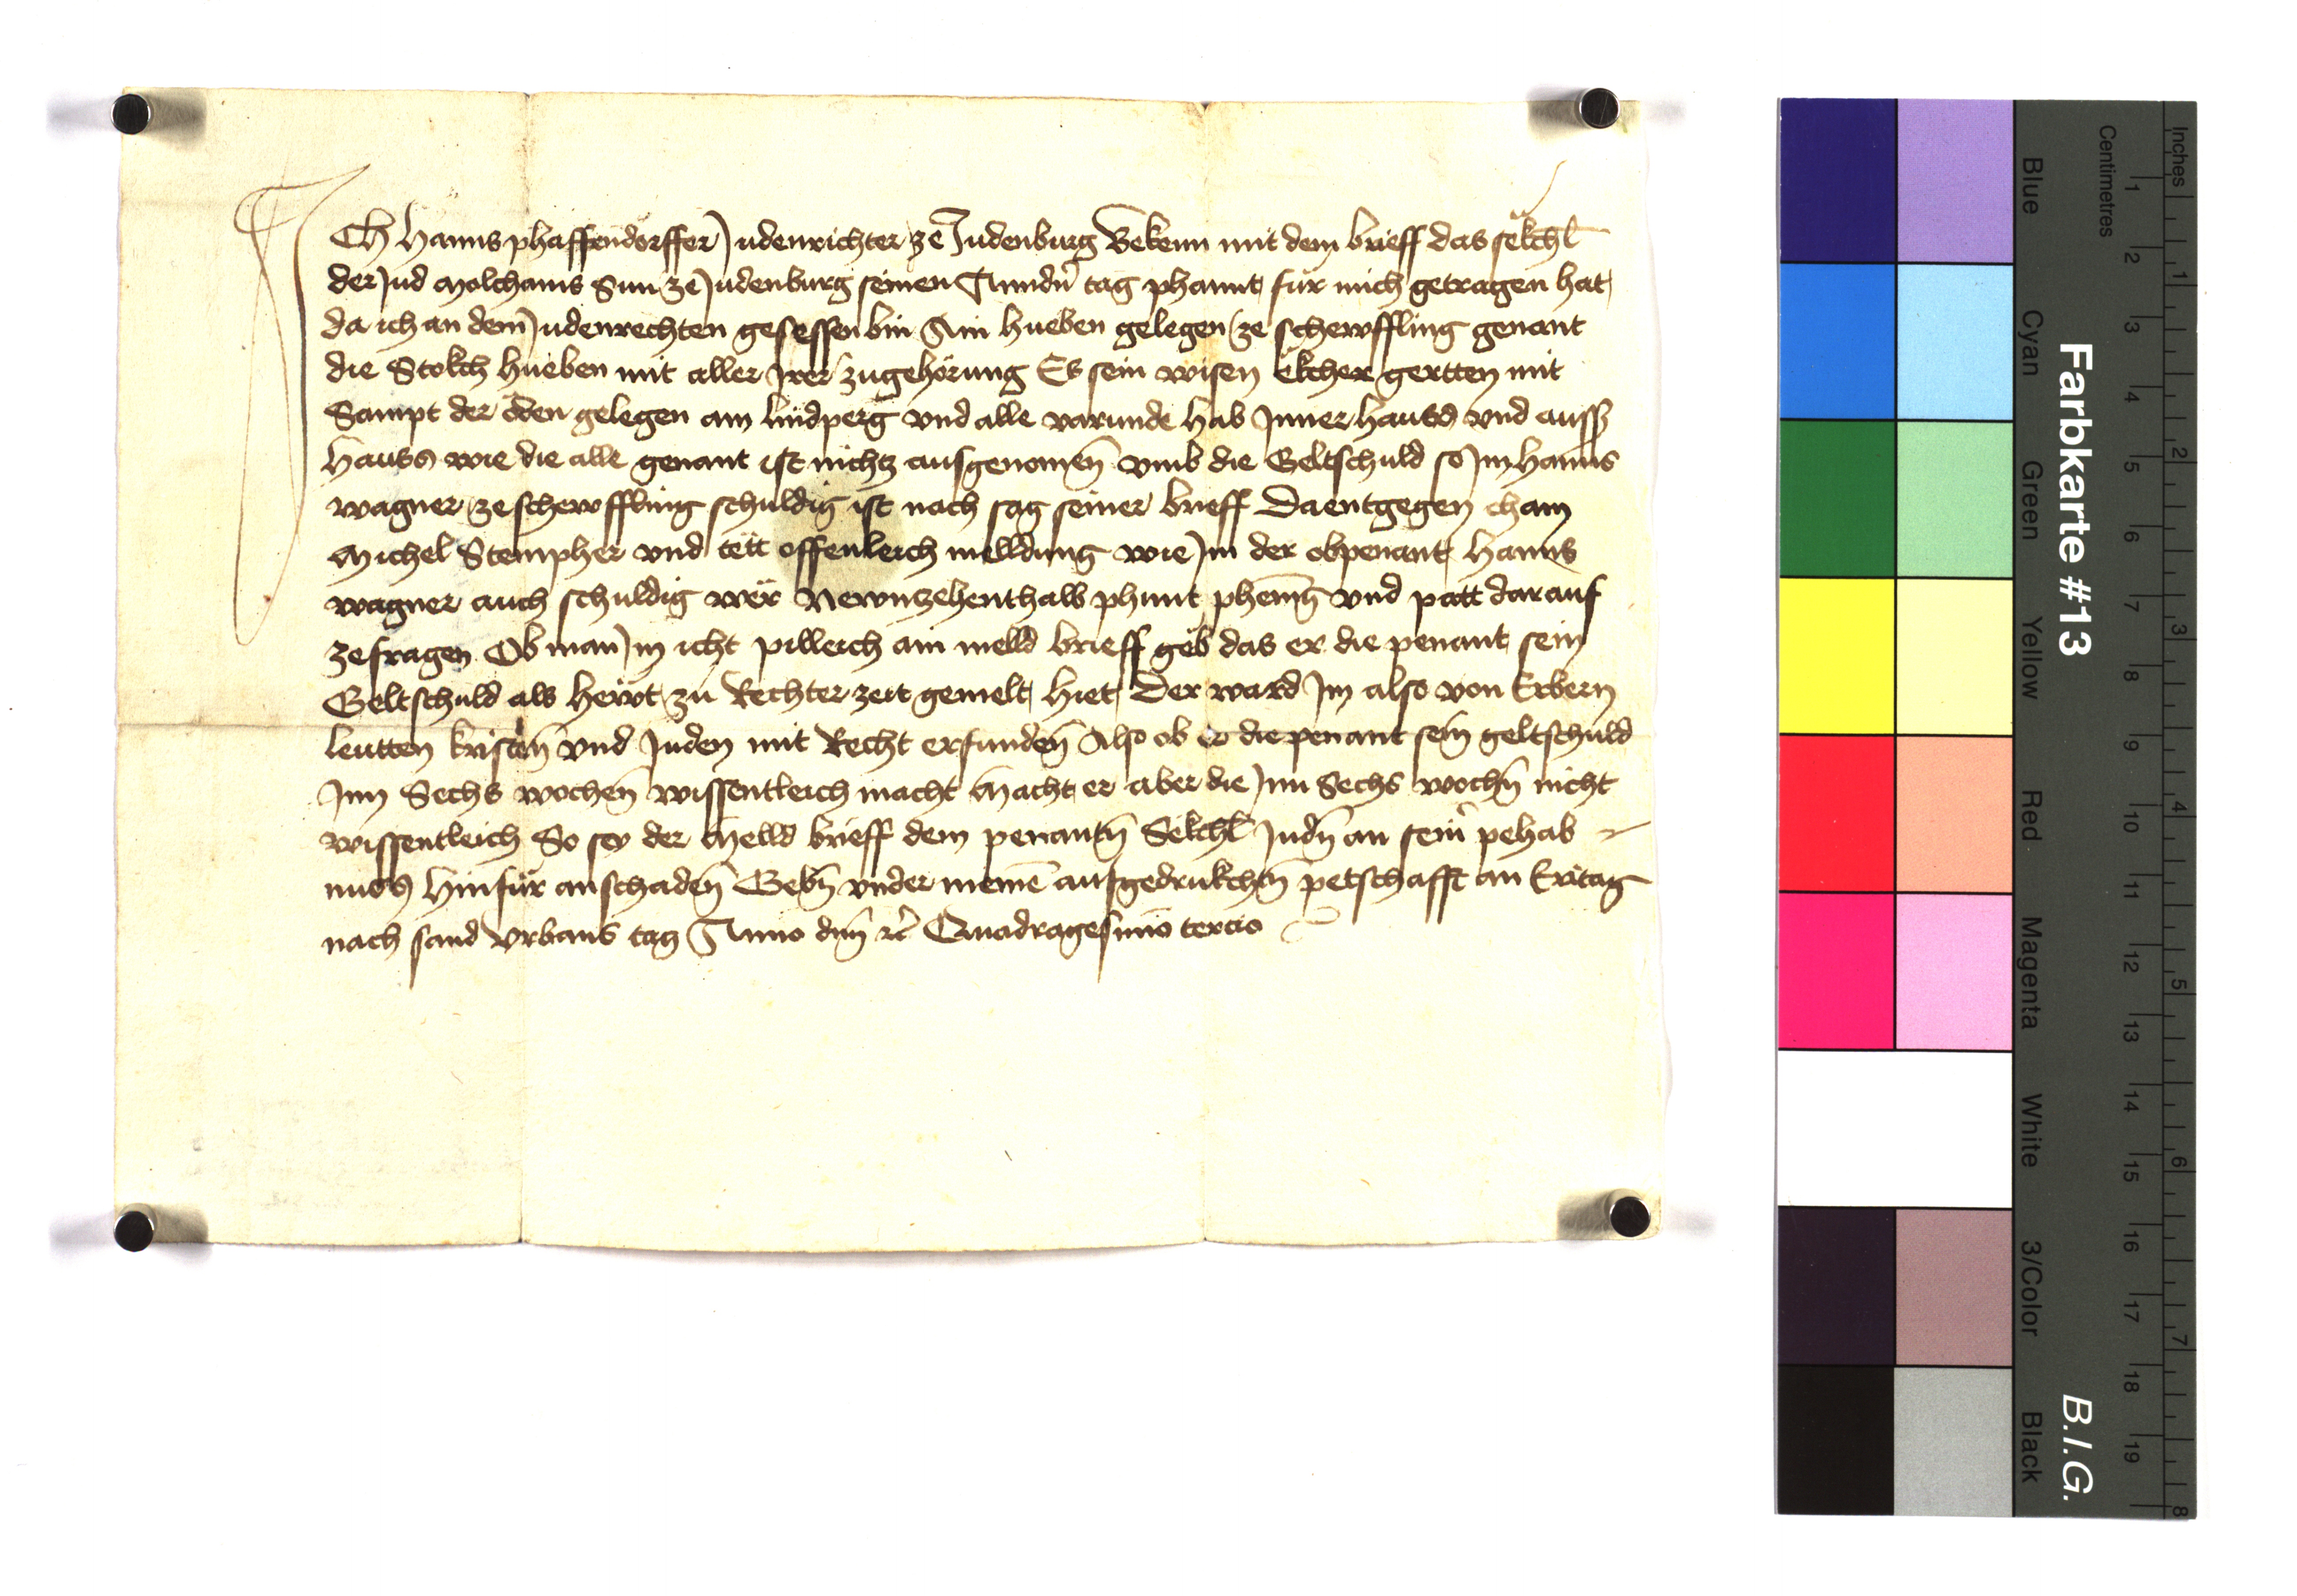 ICh Hanns phaffendorffer Judenrichter ze Judenburg Bekenn mit dem brieff das sëlchl̄
der Jud Molchams Sun ze Judenburg seinen Anndn̄ tag phannt für mich getragen hat
da ich an dem Judenrechten gesessen bin Ain hueben gelegen ze schewffling genant
die Stokch hueben mit aller Irer zugehörung Es sein wisen ëkcher gertten mit
Sampt der öden gelegen am lindperg vnd alle varunde hab Inner hauss vnd auss
hauss wie die alle genant ist nichtz ausgenomen̄ vmb die Geltschuld so Im Hanns
wagner ze schewffling schuldig ist nach sag seiner brieff Da entgegen cham
Michel Stempher vnd tëtt offenleich melldung wie Im der obpenant Hanns
wagner auch schuldig wër Newnzehenthalb phunt phenn̄g vnd patt darauf
ze fragen Ob man Im icht pilleich ain melld brieff geb das er die penant sein
Geltschuld als hewt zu Rechter zeit gemelt hiet Der ward Im also von Erbern
leutten kristen̄ vnd Juden mit Recht erfunden̄ Also ob er die penant sein̄ geltschuld
Inn Sechs wochen̄ wissentleich macht Macht er aber die Inn Sechs wochn̄ nicht
wissentleich So sey der Melld brieff dem penantn̄ Sëlchl̄ Judn̄ an sein̄ pehab
nuss hinfür an schaden̄ Gebn̄ vnder meinē aufgedrukchtn̄ petschafft an Eritag
nach sand Vrbans tag Anno dn̄j rc̄ Quadragesimo tercio
Farbkarte #13
B.I.G.
Inches
Centimetres
Blue
Cyan
Green
Yellow
Red
Magenta
White
3/Color
Black
1 2 3 4 5 6 7 8 9 10 11 12 13 14 15 16 17 18 19
1 2 3 4 5 6 7 8